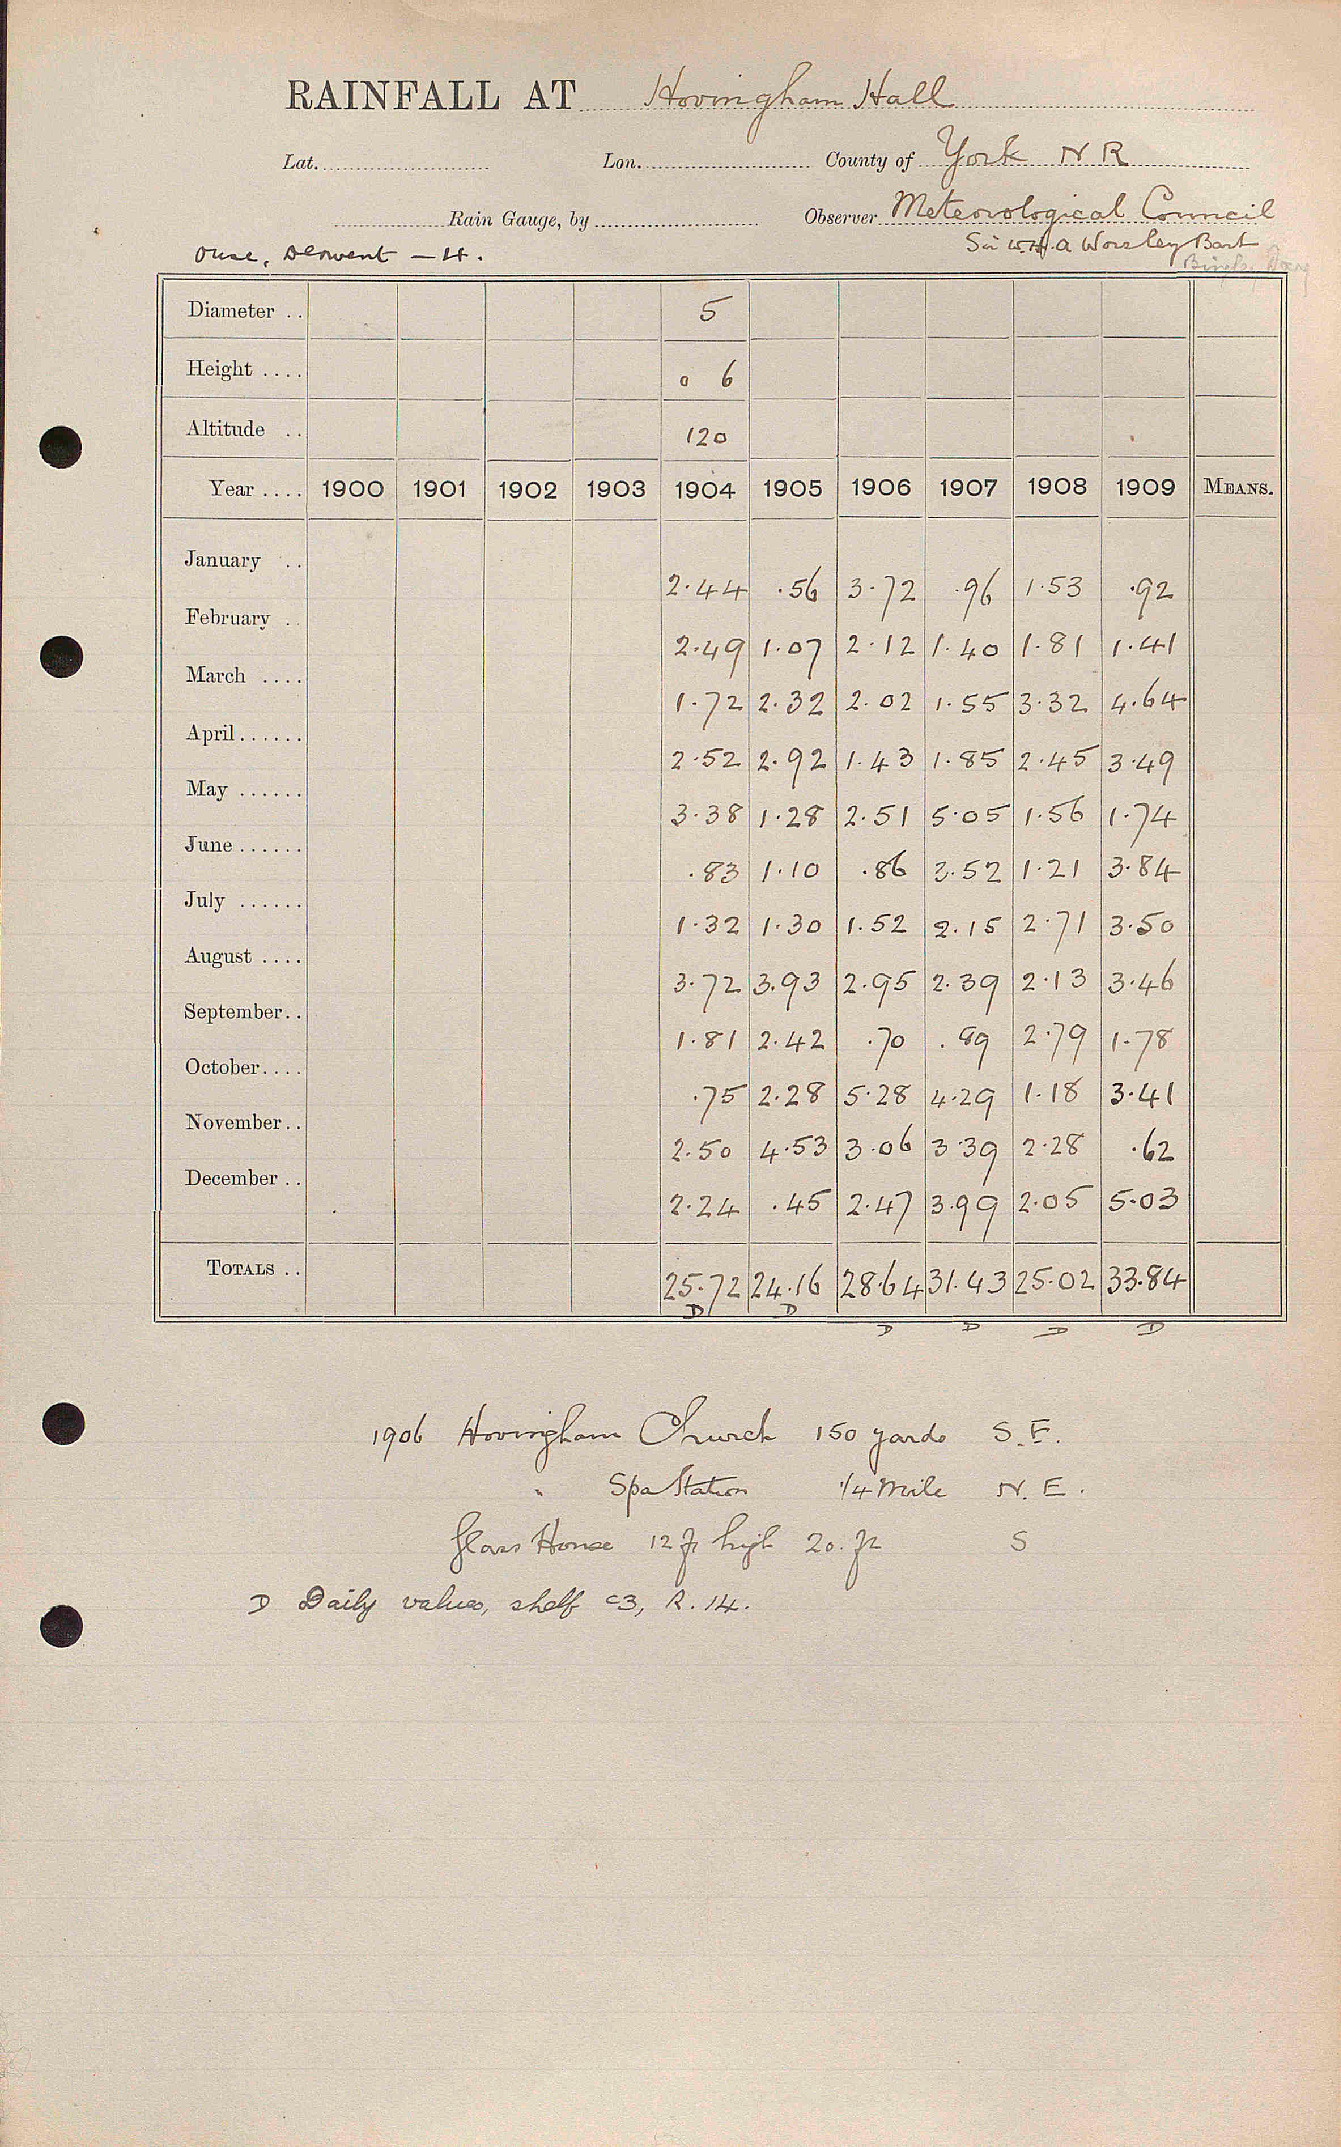 RAINFALL AT Hovingham Hall
Lat. Lon. County of York N R
Rain Gauge, by Observer Meteorological Council
Ouse, Derwent - H. Sir W.H.A Worsley Bart
Diameter .. 5
Height .... 0 6
Altitude .. 120
Year .... 1900 1901 1902 1903 1904 1905 1906 1907 1908 1909 MEANS.
January .. 2.44 .56 3.72 .96 1.53 .92
February .. 2.49 1.07 2.12 1.40 1.81 1.41
March .... 1.72 2.32 2.02 1.55 3.32 4.64
April...... 2.52 2.92 1.43 1.85 2.45 3.49
May ...... 3.38 1.28 2.51 5.05 1.56 1.74
June ...... .83 1.10 .86 3.52 1.21 3.84
July ...... 1.32 1.30 1.52 2.15 2.71 3.50
August .... 3.72 3.93 2.95 2.39 2.13 3.46
September.. 1.81 2.42 .70 .89 2.79 1.78
October.... .75 2.28 5.28 4.29 1.18 3.41
November.. 2.50 4.53 3.06 3.39 2.28 .62
December .. 2.24 .45 2.47 3.99 2.05 5.03
TOTALS .. 25.72 24.16 28.64 31.43 25.02 33.84
D D D D D D
1906 Hovingham Church 150 yards S.E.
" Spa Station 1/4 Mile N.E.
Glass House 12 ft high 20. ft S
D Daily values, shelf C3, R.14.